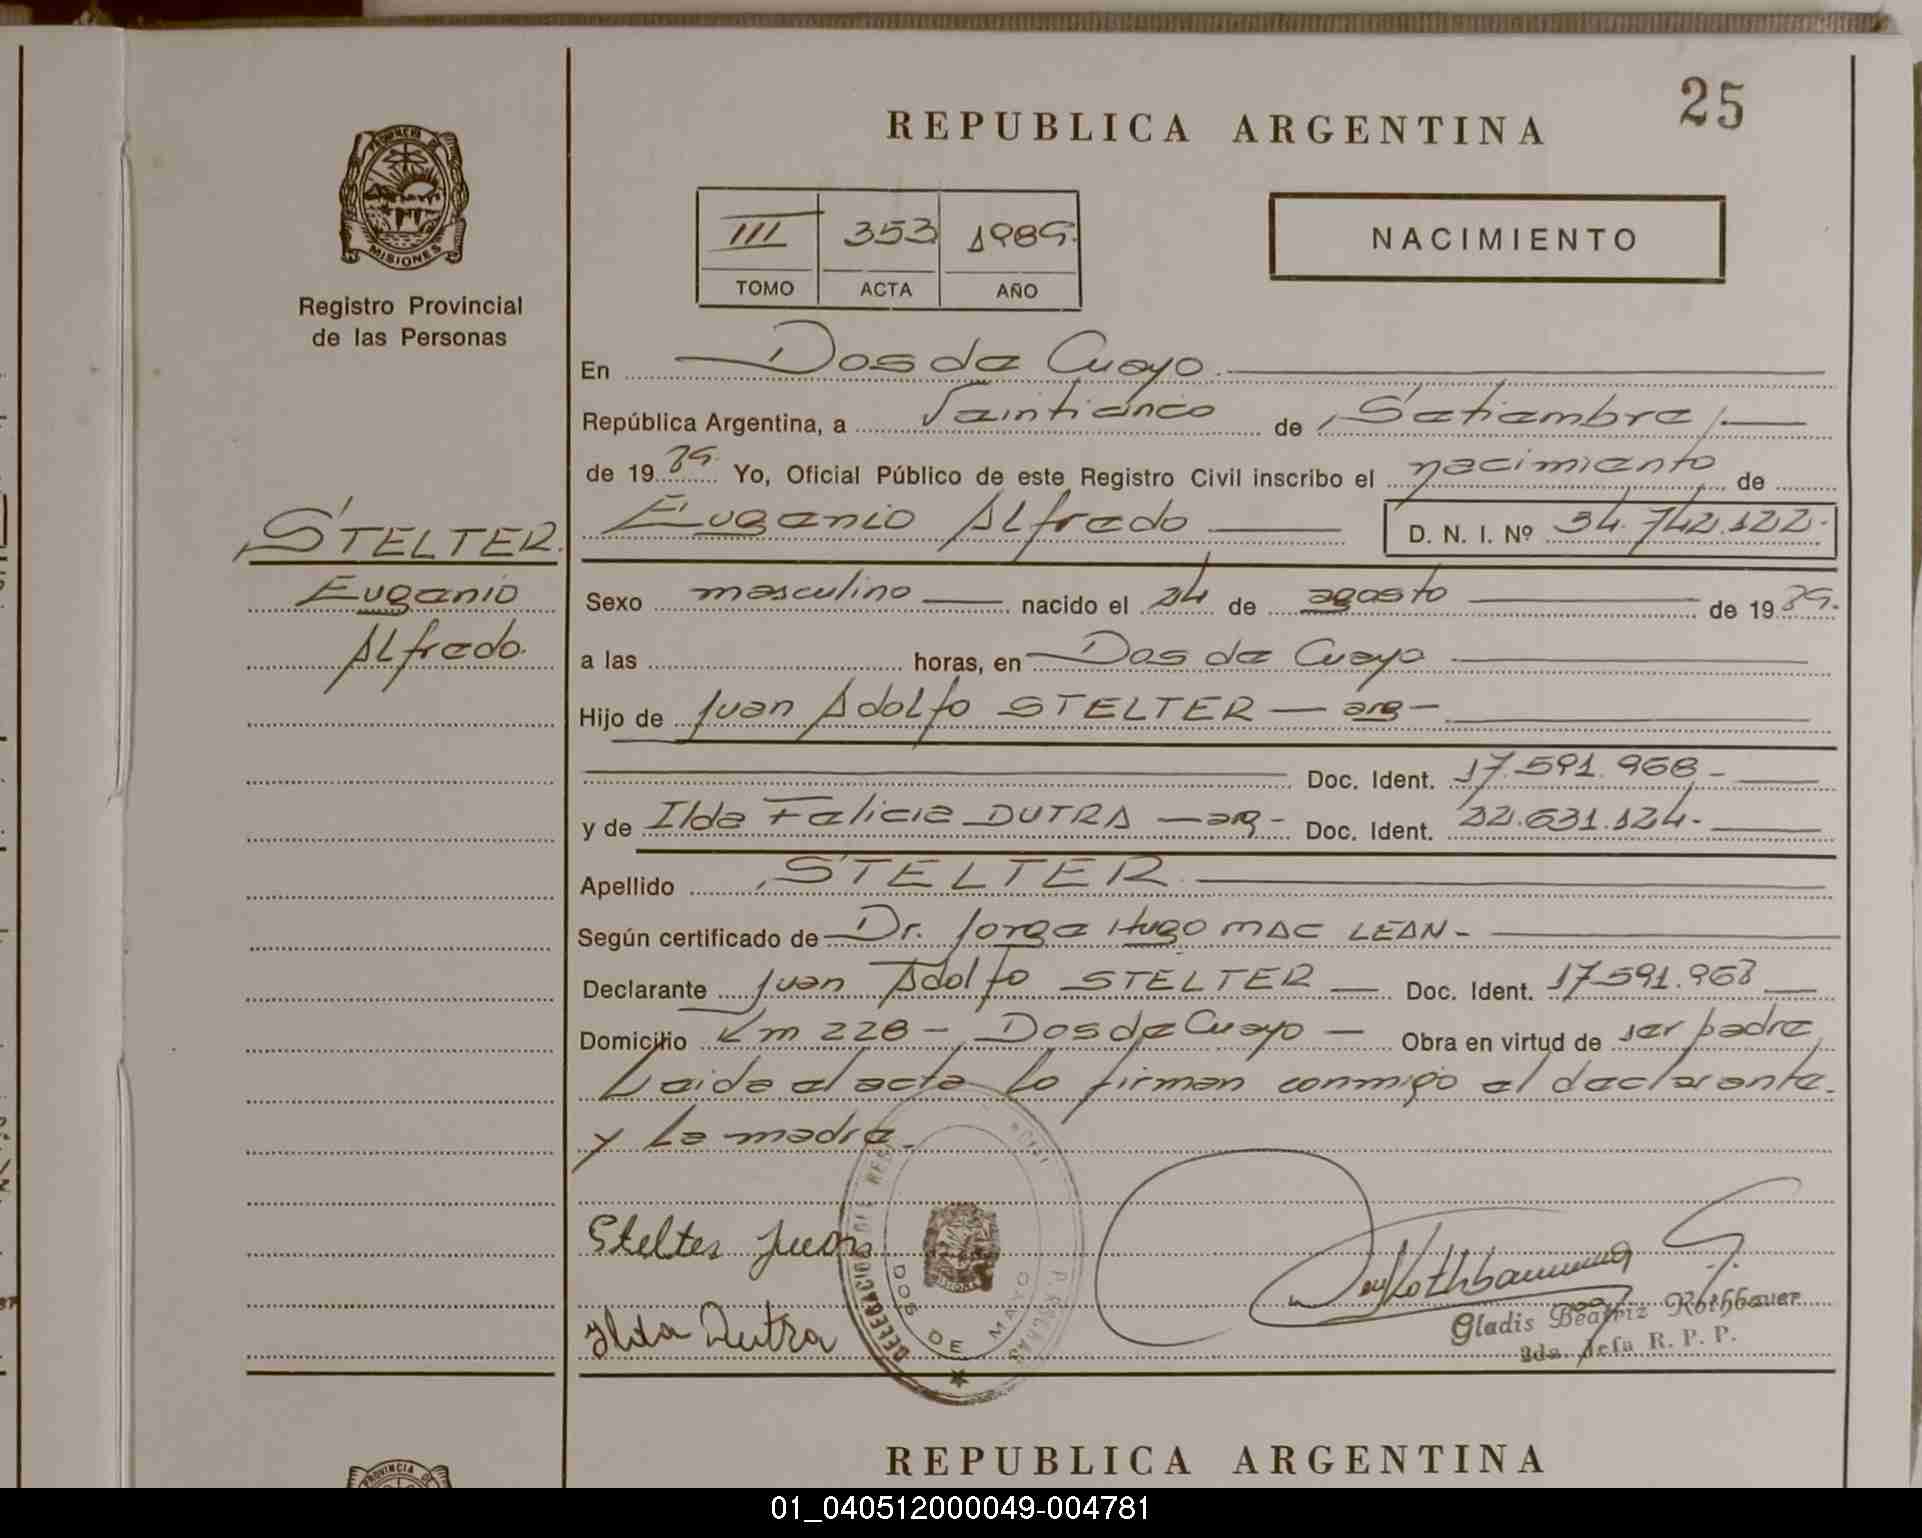 25
REPUBLICA ARGENTINA
PROVINCIA DE
MISIONES
Registro Provincial
de las Personas
III 353 1989.
TOMO ACTA AÑO
NACIMIENTO
En Dos de Mayo.
República Argentina, a Veinticinco de Setiembre
de 1989. Yo, Oficial Público de este Registro Civil inscribo el nacimiento de
Eugenio Alfredo D. N. I. Nº 34.742.122.
STELTER.
Eugenio
Alfredo.
Sexo masculino nacido el 24 de agosto de 1989.
a las horas, en Dos de Mayo
Hijo de Juan Adolfo STELTER — arg —
Doc. Ident. 17.591.968 —
y de Ilda Felicia DUTRA — arg — Doc. Ident. 22.631.124. —
Apellido STELTER.
Según certificado de Dr. Jorge Hugo MAC LEAN —
Declarante Juan Adolfo STELTER — Doc. Ident. 17.591.968
Domicilio Km 228 — Dos de Mayo — Obra en virtud de ser padre
Leida el acta lo firman conmigo el declarante.
y la madre.
Stelter Juan
Ilda Dutra
DOS DE MAYO
Gladis Beatriz Rothbauer
2da. Jefa R. P. P.
PROVINCIA DE
REPUBLICA ARGENTINA
01_040512000049-004781